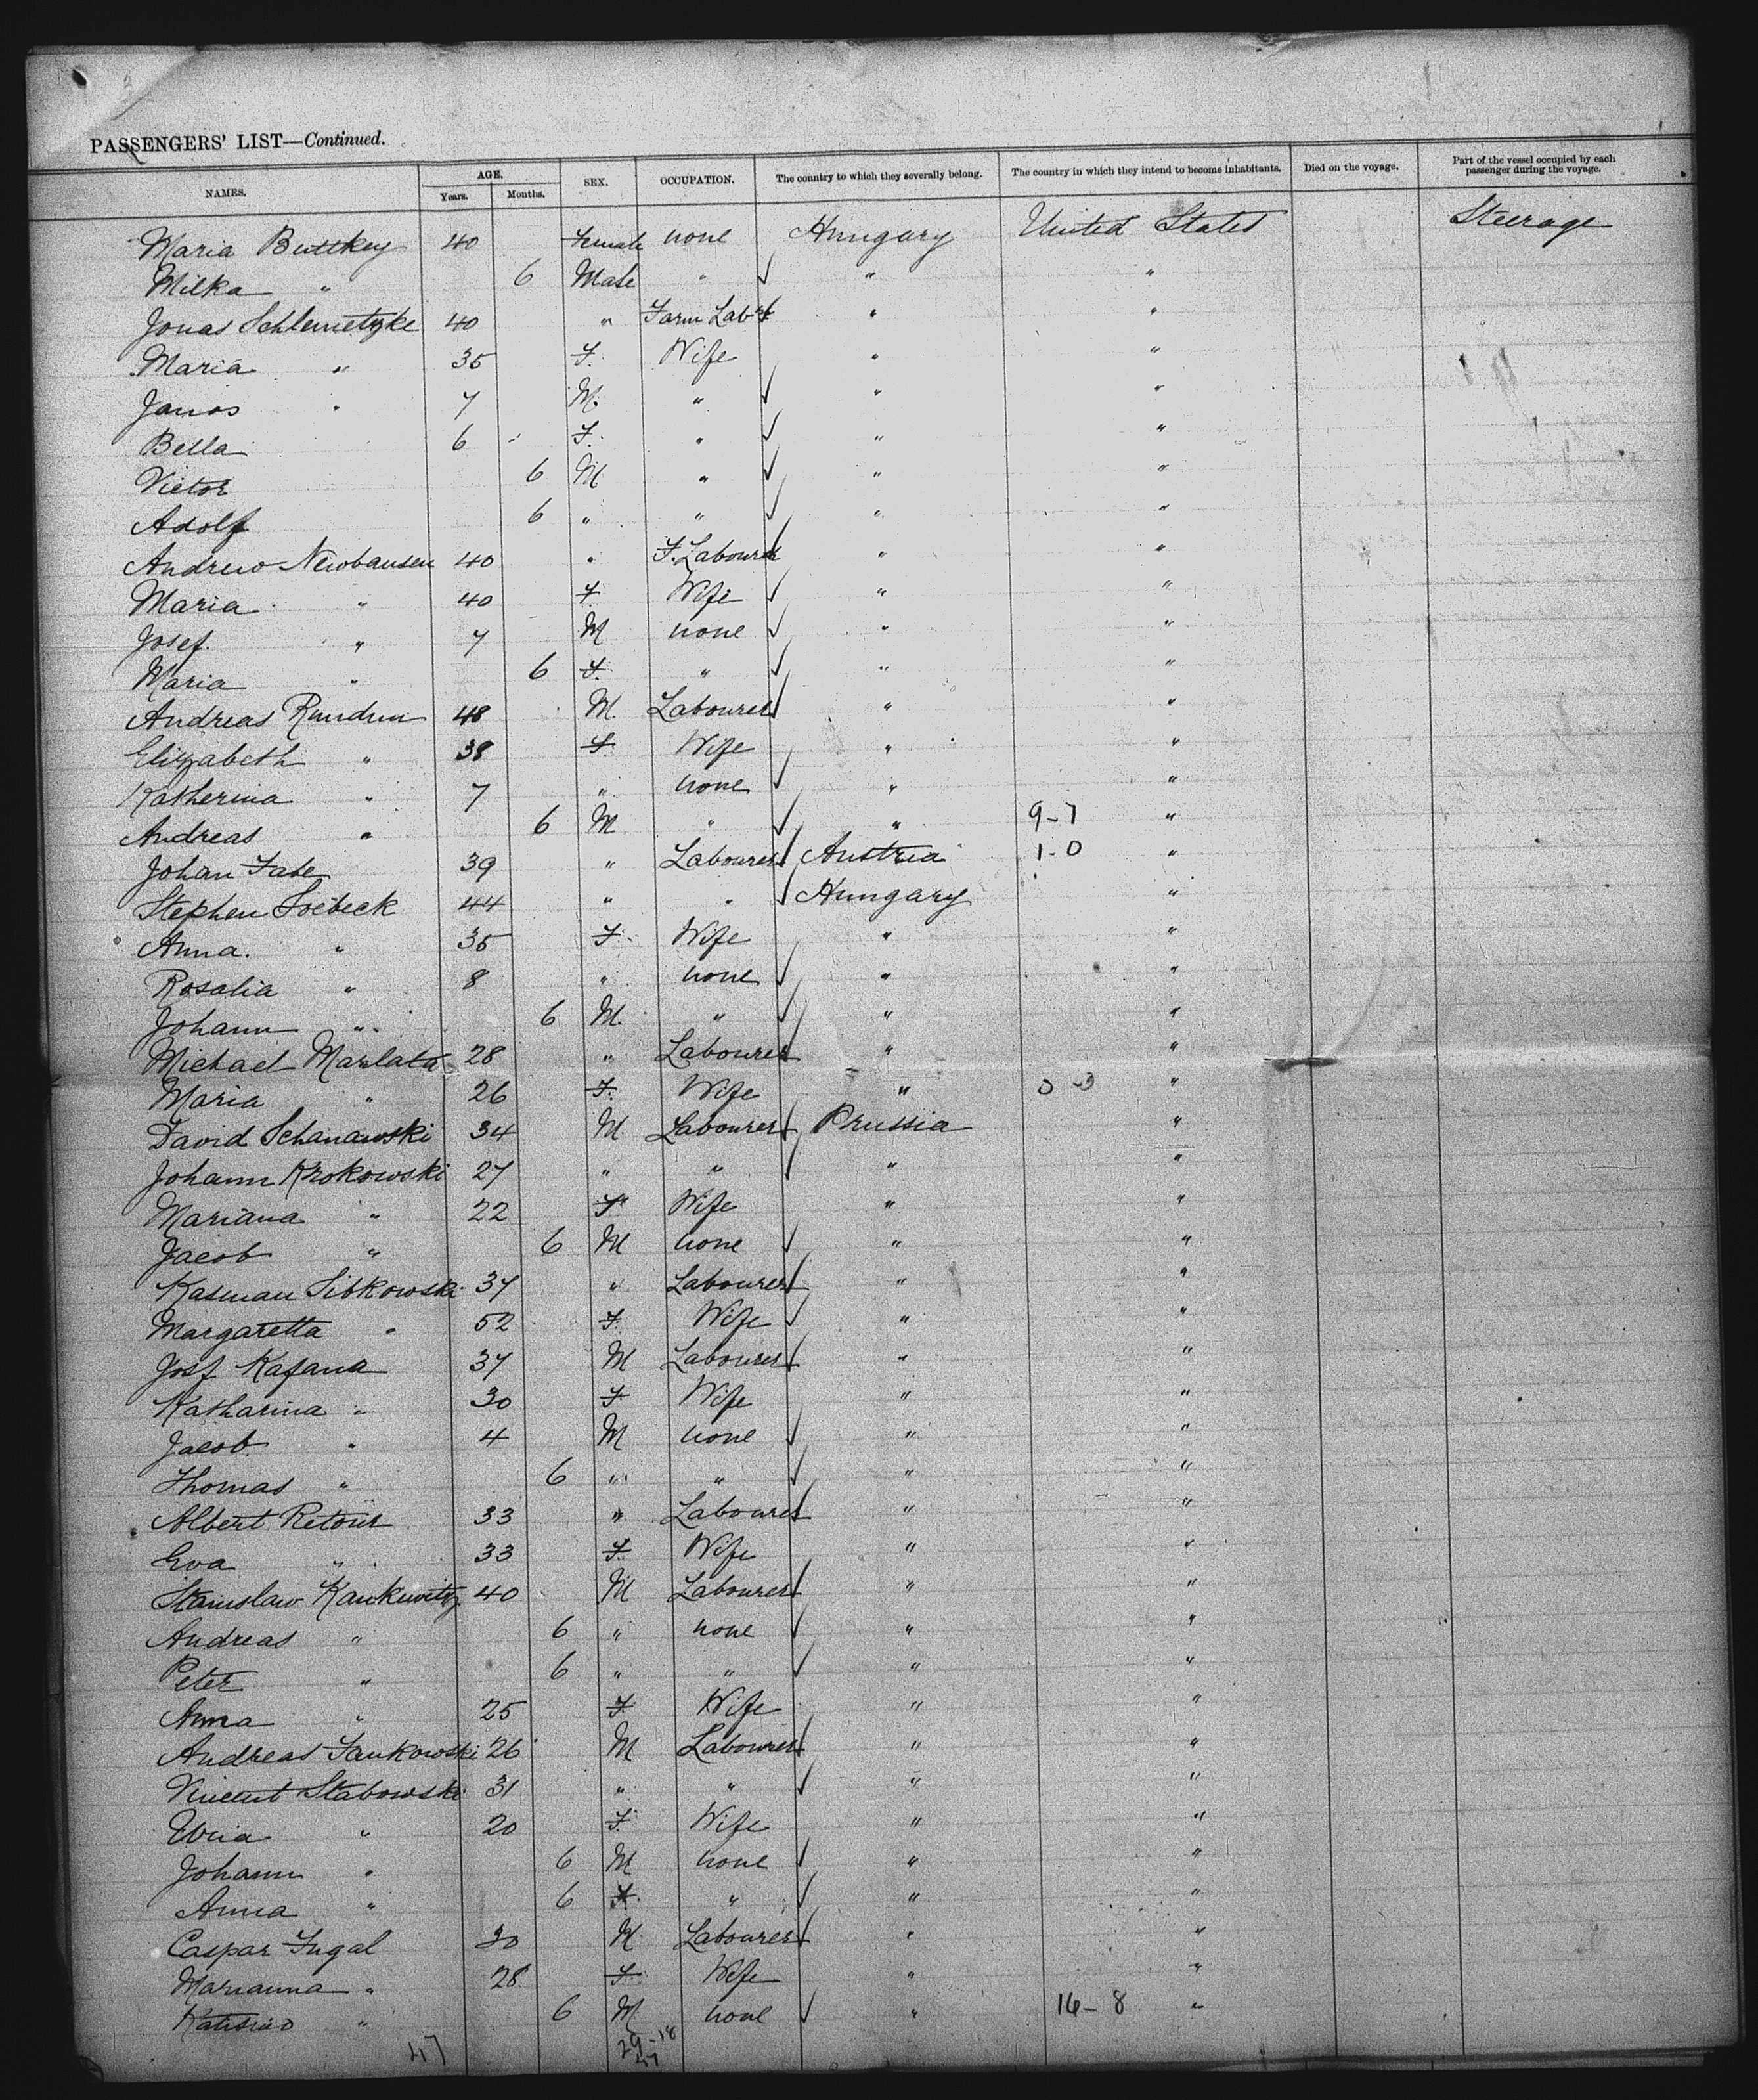 PASSENGERS' LIST—Continued.
NAMES. AGE. Years. Months. SEX. OCCUPATION. The country to which they severally belong. The country in which they intend to become inhabitants. Died on the voyage. Part of the vessel occupied by each passenger during the voyage.
Maria Buttkey 40 Female none Hungary United States Steerage
Milka " 6 Male " ✓ " "
Jonas Schlemetzke 40 " Farm Labr ✓ " "
Maria " 35 F. Wife " "
Janos " 7 M. " ✓ " "
Bella 6 F. " ✓ " "
Victor 6 M " ✓ " "
Adolf 6 " " ✓ " "
Andrew Newbausen 40 " F. Labourer ✓ " "
Maria " 40 F. Wife ✓ " "
Josef. " 7 M none ✓ " "
Maria " 6 F. " ✓ " "
Andreas 48 M. Labourer ✓ " "
Elizabeth " 38 F. Wife " "
Katherina " 7 " none ✓ " "
Andreas " 6 M " ✓ " 9-7 "
Johan Fabe 39 " Labourer ✓ Austria 1-0 "
Stephen Soebeck 44 " " ✓ Hungary "
Anna. " 35 F. Wife " "
Rosalia " 8 " none ✓ " "
Johann " 6 M. " ✓ " "
Michael Marlata 28 " Labourer ✓ " "
Maria " 26 F. Wife " "
David Schanawski 34 M Labourer ✓ Prussia "
Johann Krokowski 27 " " ✓ " "
Mariana " 22 F Wife " "
Jacob " 6 M none ✓ " "
Kasman Sibkowski 37 " Labourer ✓ " "
Margaretta " 52 F. Wife ✓ " "
Josf Kafana 37 M Labourer ✓ " "
Katharina " 30 F Wife " "
Jacob " 4 M none ✓ " "
Thomas " 6 " " ✓ " "
Albert Retour 33 " Labourer ✓ " "
Eva " 33 F. Wife " "
Stanislaw Kankuvitz 40 M Labourer ✓ " "
Andreas " 6 " none ✓ " "
Peter " 6 " " ✓ " "
Anna " 25 F. Wife " "
Andreas Jankowski 26 M Labourer ✓ " "
Vincent Stabowski 31 " " ✓ " "
" 20 F. Wife " "
Johann " 6 M none ✓ " "
Anna " 6 F. " ✓ " "
Caspar Fugal 30 M Labourer ✓ " "
Marianna " 28 F. Wife " "
" 6 M none ✓ " 14-8 "
47 29-18
47